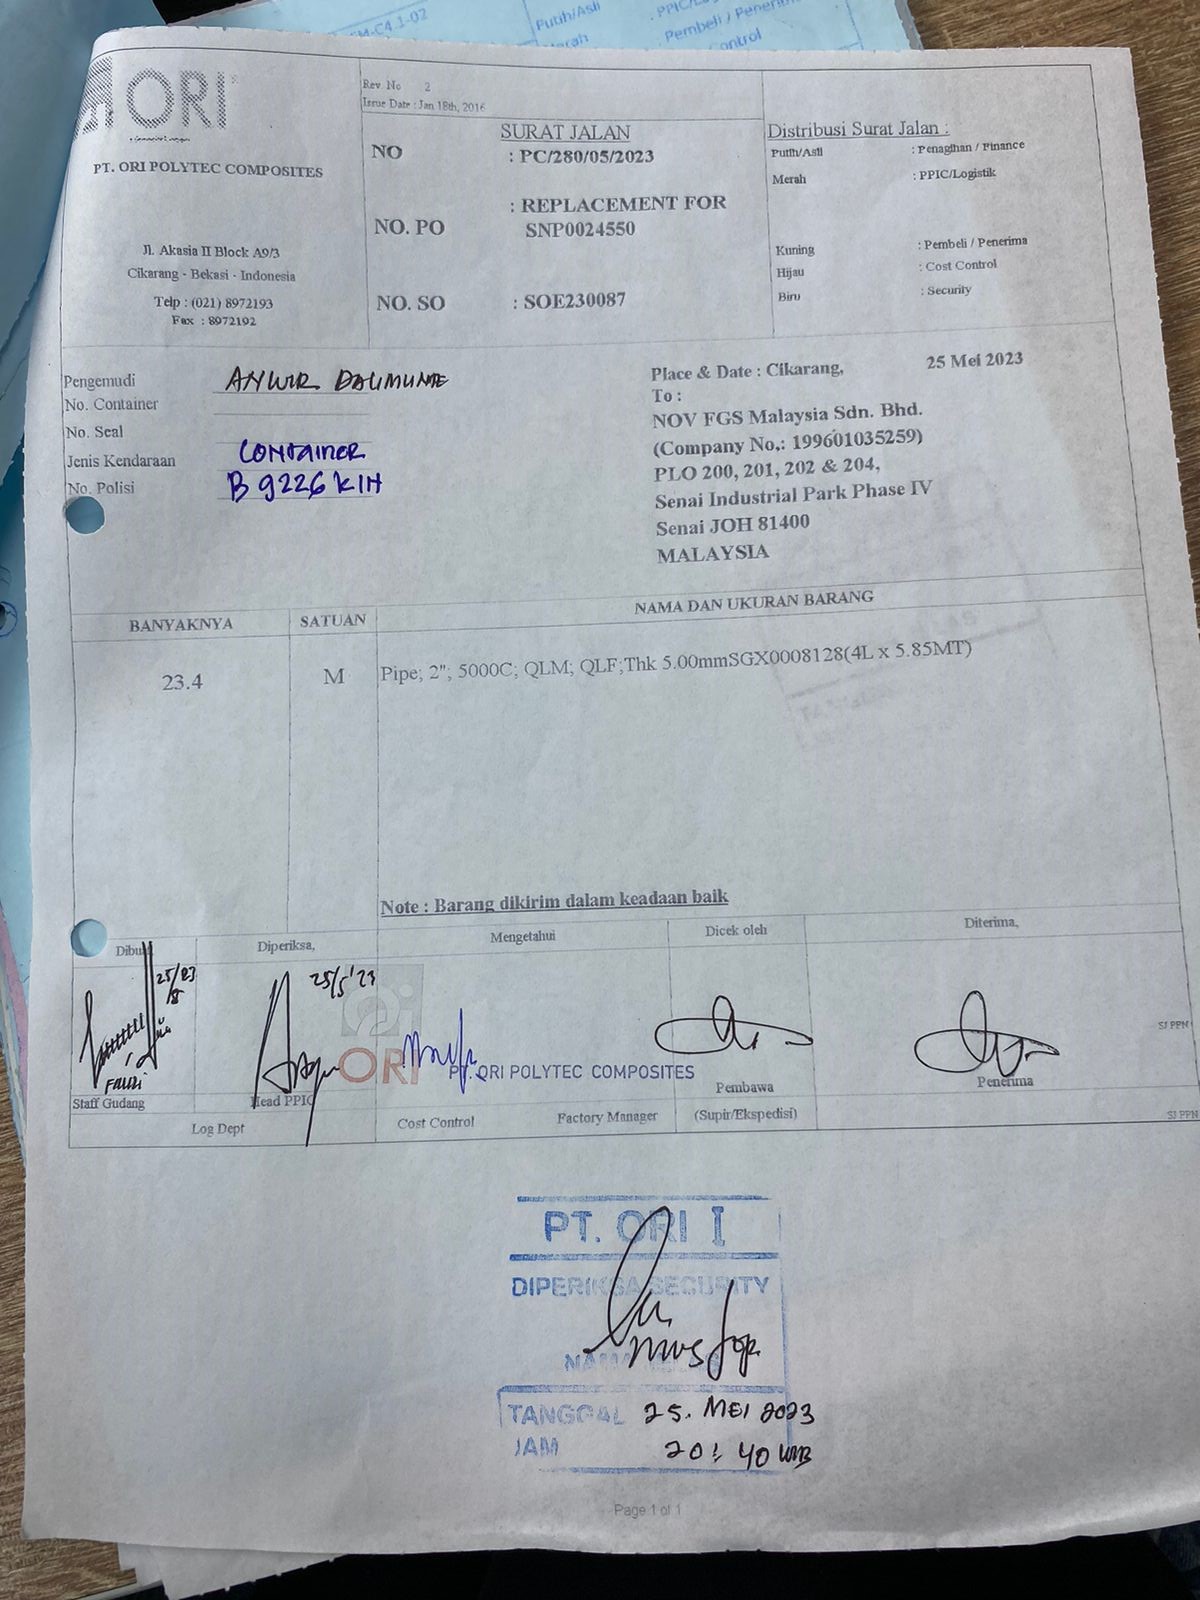 M-C4.1-02
Putih/Asli
Pembeli / Penerima
ORI
PT. ORI POLYTEC COMPOSITES
Jl. Akasia II Block A9/3
Cikarang - Bekasi - Indonesia
Telp : (021) 8972193
Fax : 8972192
Rev. No 2
Issue Date : Jan 18th, 2016
SURAT JALAN
NO : PC/280/05/2023
NO. PO : REPLACEMENT FOR
SNP0024550
NO. SO : SOE230087
Distribusi Surat Jalan :
Putih/Asli : Penagihan / Finance
Merah : PPIC/Logistik
Kuning : Pembeli / Penerima
Hijau : Cost Control
Biru : Security
Pengemudi
No. Container
No. Seal
Jenis Kendaraan Container
No. Polisi B 9226 KIH
Place & Date : Cikarang, 25 Mei 2023
To :
NOV FGS Malaysia Sdn. Bhd.
(Company No.: 199601035259)
PLO 200, 201, 202 & 204,
Senai Industrial Park Phase IV
Senai JOH 81400
MALAYSIA
BANYAKNYA SATUAN NAMA DAN UKURAN BARANG
23.4 M Pipe; 2"; 5000C; QLM; QLF;Thk 5.00mmSGX0008128(4L x 5.85MT)
Note : Barang dikirim dalam keadaan baik
Diperiksa, Mengetahui Dicek oleh Diterima,
25/5'23
ORI
PT. ORI POLYTEC COMPOSITES
SJ PPN
Staff Gudang Head PPIC Pembawa Penerima
Log Dept Cost Control Factory Manager (Supir/Ekspedisi) SJ PPN
PT. ORI I
DIPERIKSA SECURITY
TANGGAL 25. MEI 2023
JAM 20:40 WIB
Page 1 of 1